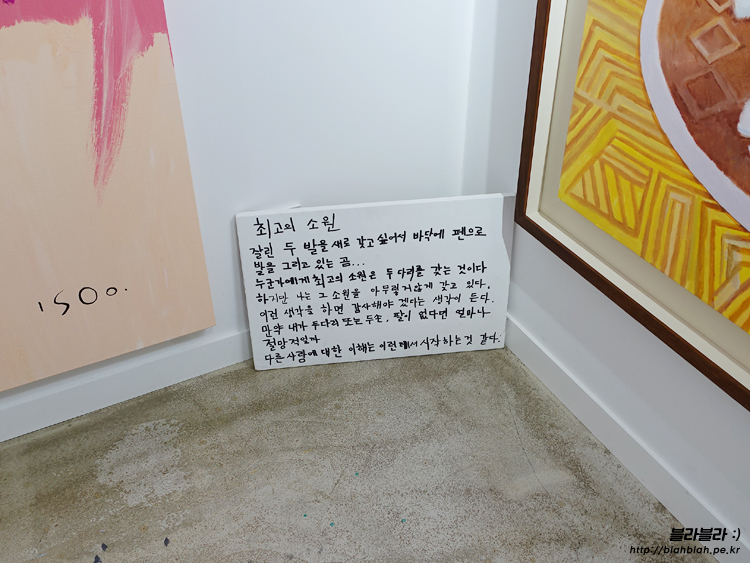 ISOO.
최고의 소원
잘린 두 발을 새로 갖고 싶어서 바닥에 펜으로
발을 그리고 있는 곰...
누군가에게 최고의 소원은 두 다리를 갖는 것이다
하지만 나는 그 소원을 아무렇거않게 갖고 있다.
이런 생각을 하면 감사해야 겠다는 생각이 든다.
만약 내가 두다리 또는 두손, 팔이 없다면 얼마나
절망적일까
다른 사람에 대한 이해는 이런 데서 시작하는 것 같다.
블라블라 :)
http://blahblah.pe.kr